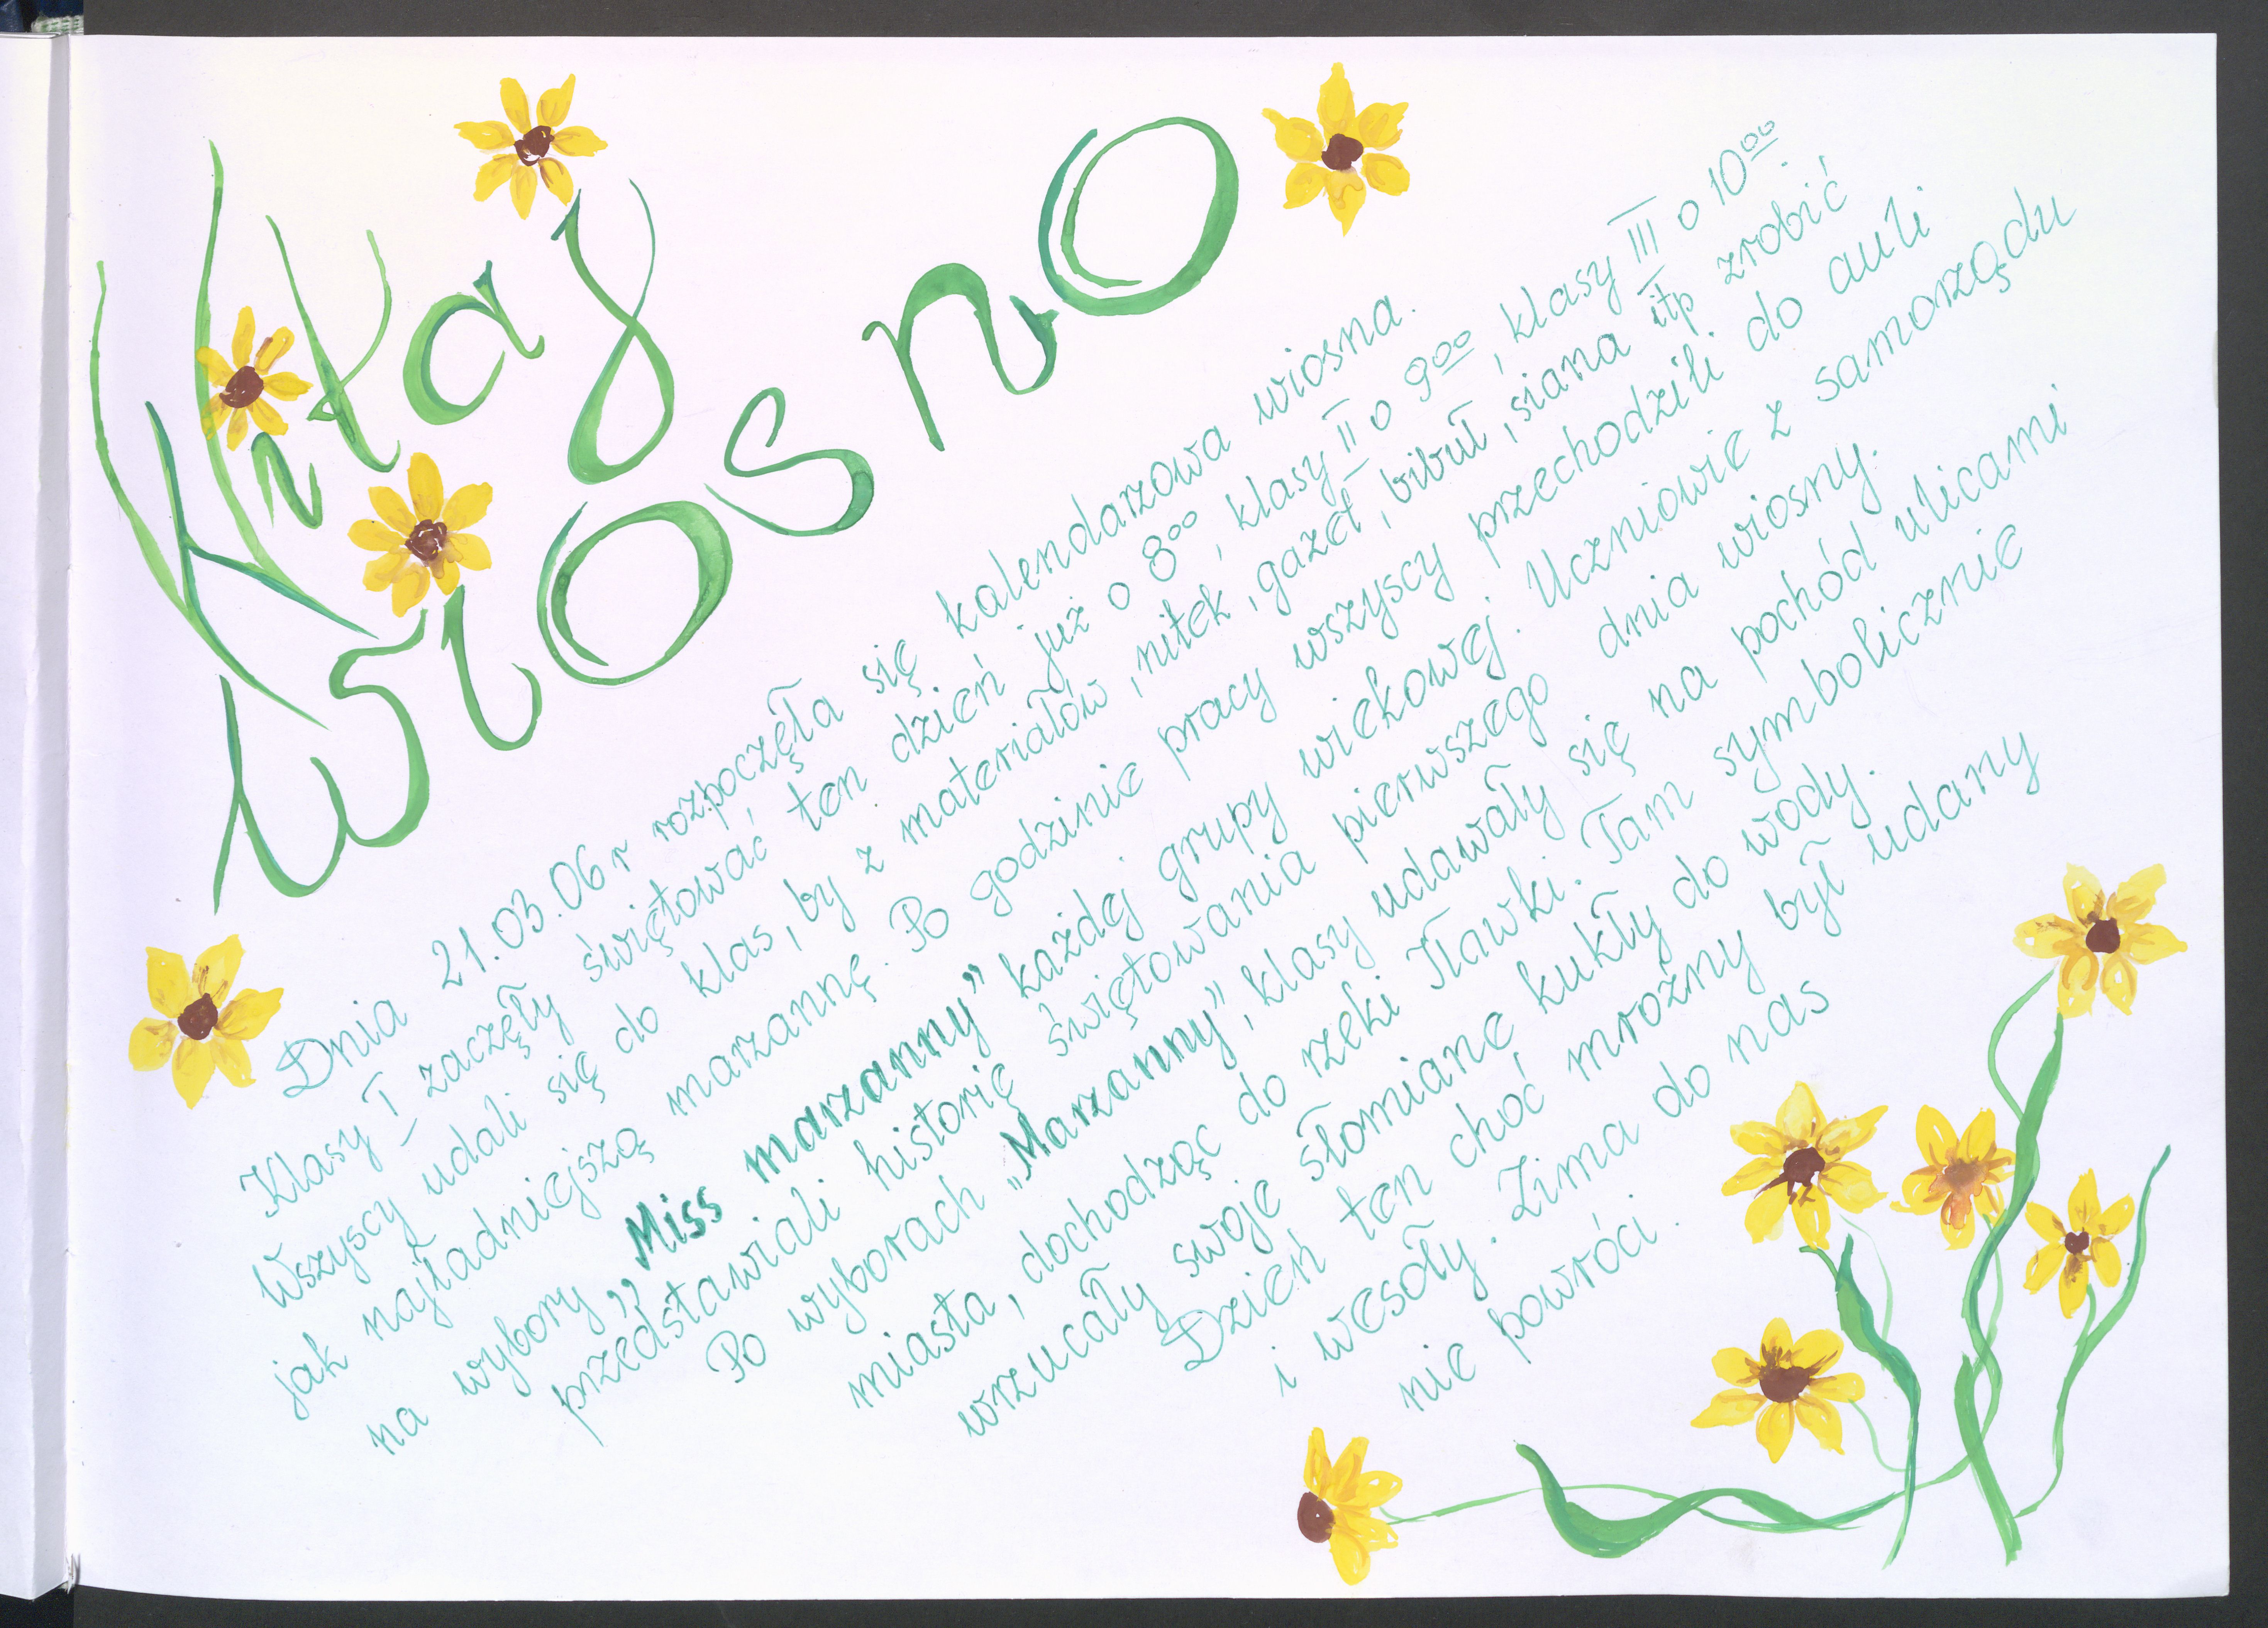 Witaj
wiosno
Dnia 21.03.06 r rozpoczęła się kalendarzowa wiosna.
Klasy I zaczęły świętować ten dzień już o 8⁰⁰, klasy II o 9⁰⁰, klasy III o 10⁰⁰.
Wszyscy udali się do klas, by z materiałów, nitek, gazet, bibuł, siana itp zrobić
jak najładniejszą marzannę. Po godzinie pracy wszyscy przechodzili do auli
na wybory „Miss marzanny” każdej grupy wiekowej. Uczniowie z samorządu
przedstawiali historię świętowania pierwszego dnia wiosny.
Po wyborach „Marzanny”, klasy udawały się na pochód ulicami
miasta, dochodząc do rzeki Iławki. Tam symbolicznie
wrzucały swoje słomiane kukły do wody.
Dzień ten choć mroźny był udany
i wesoły. Zima do nas
nie powróci.